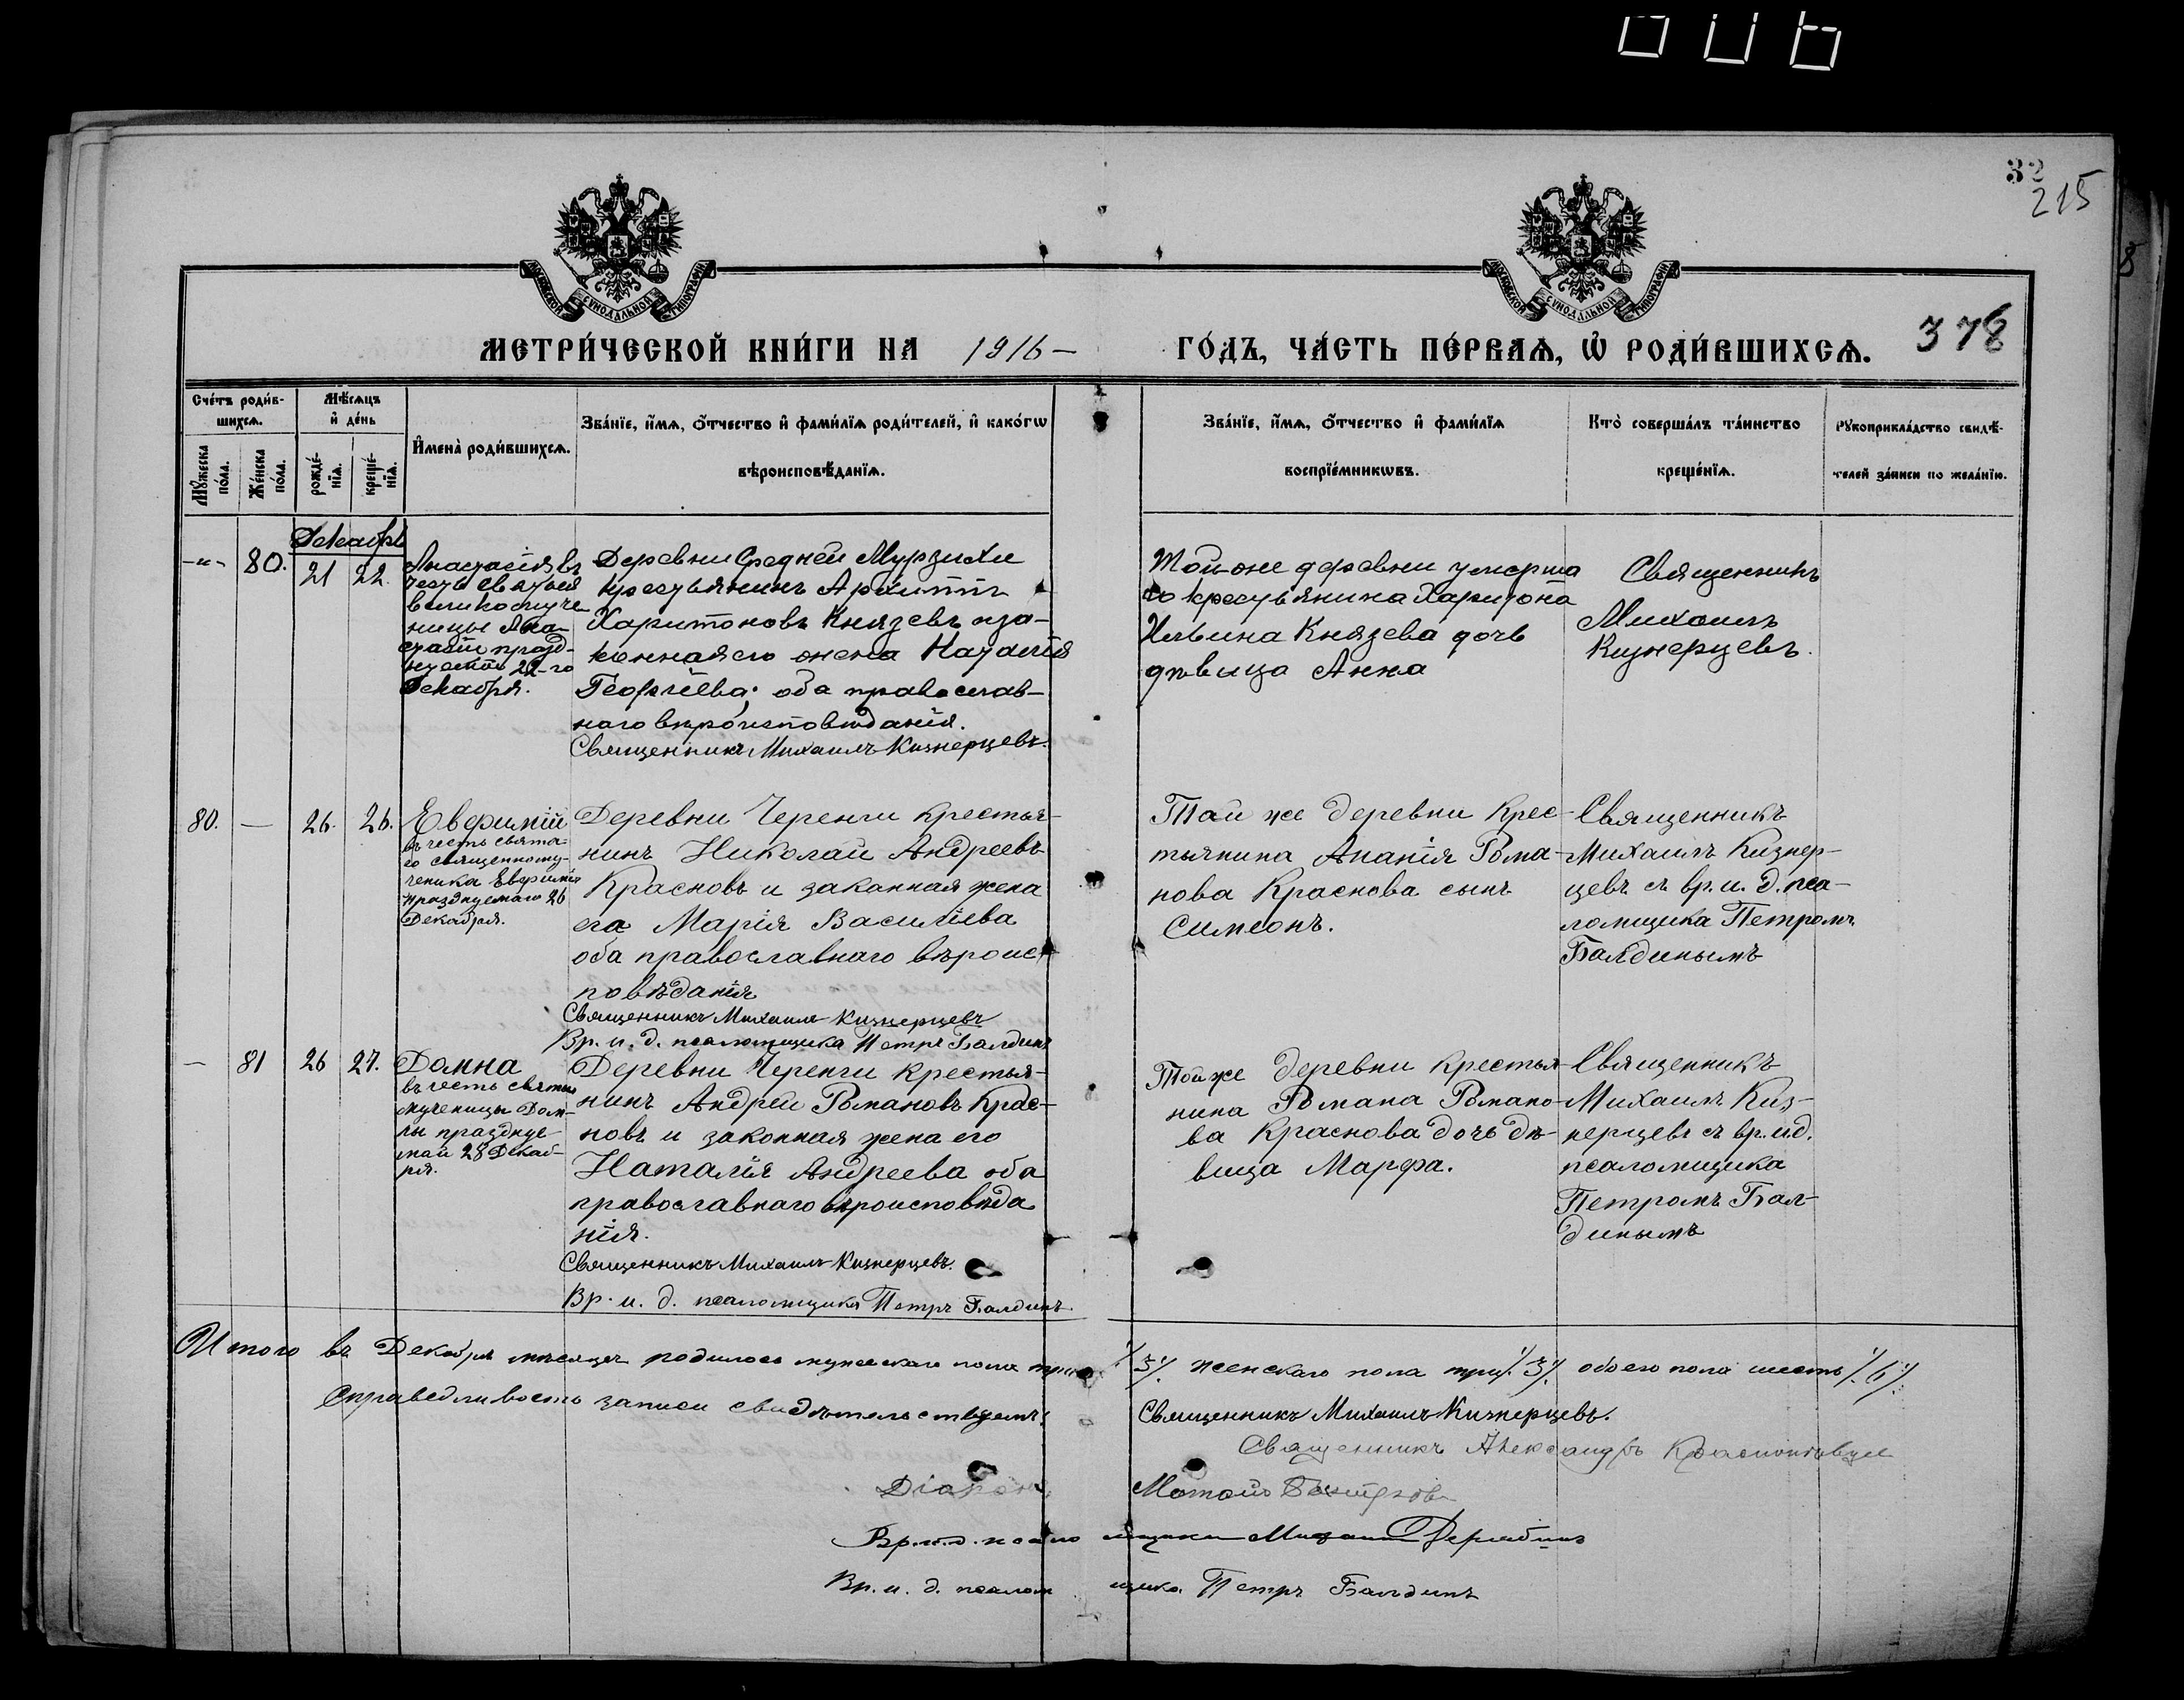 32
215
378
МЕТРИ́ЧЕСКОЙ КНИ́ГИ НА 1916 – ГО́ДЪ, ЧА́СТЬ ПЕ́РВАѦ, Ѡ҆ РОДИ́ВШИХСѦ.
Сче́тъ роди́в-
шихсѧ.
Мѣ́сѧцъ
и҆ де́нь
И҆мена̀ роди́вшихсѧ.
Зва́нїе, и҆́мѧ, ѻ҆́тчество и҆ фами́лїѧ роди́телей, и҆ како́гѡ
вѣроисповѣ́данїѧ.
Зва́нїе, и҆́мѧ, ѻ҆́тчество и҆ фами́лїѧ
воспрїе́мникѡвъ.
Кто̀ соверша́лъ та́инство
креще́нїѧ.
Рꙋкоприкла́дство свидѣ́-
телей за́писи по жела́нїю.
Мꙋ́жеска
по́ла.
Же́нска
по́ла.
рожде́-
нїѧ.
креще́-
нїѧ.
Декабрь
-"- 80. 21 22.
Анастасія въ
честь святыя
великомуче
ницы Ана-
стасіи празд-
нуемой 22-го
Декабря.
Деревни Средней Мурзихи
крестьянинъ Архиппъ
Харитоновъ Князевъ и за-
конная его жена Наталія
Георгіева; оба православ-
наго вѣроисповѣданія.
Священникъ Михаилъ Кизнерцевъ.
Той-же деревни умерша
го крестьянина Харитона
Ильина Князева дочь
дѣвица Анна
Священникъ
Михаилъ
Кизнерцевъ.
80. — 26. 26.
Евфимій
въ честь свята-
го священному-
ченика Евфимія
празднуемаго 26
Декабря.
Деревни Черенги крестья-
нинъ Николай Андреевъ
Красновъ и законная жена
его Марія Василіева
оба православнаго вѣроис-
повѣданія
Священникъ Михаилъ Кизнерцевъ
Вр. и. д. псаломщика Петръ Балдинъ
Той же деревни крес-
тьянина Ананія Рома-
нова Краснова сынъ
Симеонъ.
Священникъ
Михаилъ Кизнер-
цевъ съ вр. и. д. пса-
ломщика Петромъ
Балдинымъ
— 81 26 27.
Домна
въ честь святыя
мученицы Дом-
ны празднуе-
мой 28 Декаб-
ря.
Деревни Черенги крестья-
нинъ Андрей Романовъ Крас-
новъ и законная жена его
Наталія Андреева оба
православнаго вѣроисповѣда
нія.
Священникъ Михаилъ Кизнерцевъ.
Вр. и. д. псаломщика Петръ Балдинъ.
Той же деревни крестья-
нина Романа Романо-
ва Краснова дочь дѣ-
вица Марфа.
Священникъ
Михаилъ Киз-
нерцевъ съ вр. и.д.
псаломщика
Петромъ Бал-
динымъ
Итого въ Декабрѣ мѣсяцѣ родилось мужескаго пола три /3/. женскаго пола три /3/. обоего пола шесть /6/.
Справедливость записи свидѣтельствуемъ:
Священникъ Михаилъ Кизнерцевъ.
Священникъ Александръ
Діаконъ
Вр. и. д. псаломщика
Вр. и. д. псаломщика Петръ Балдинъ